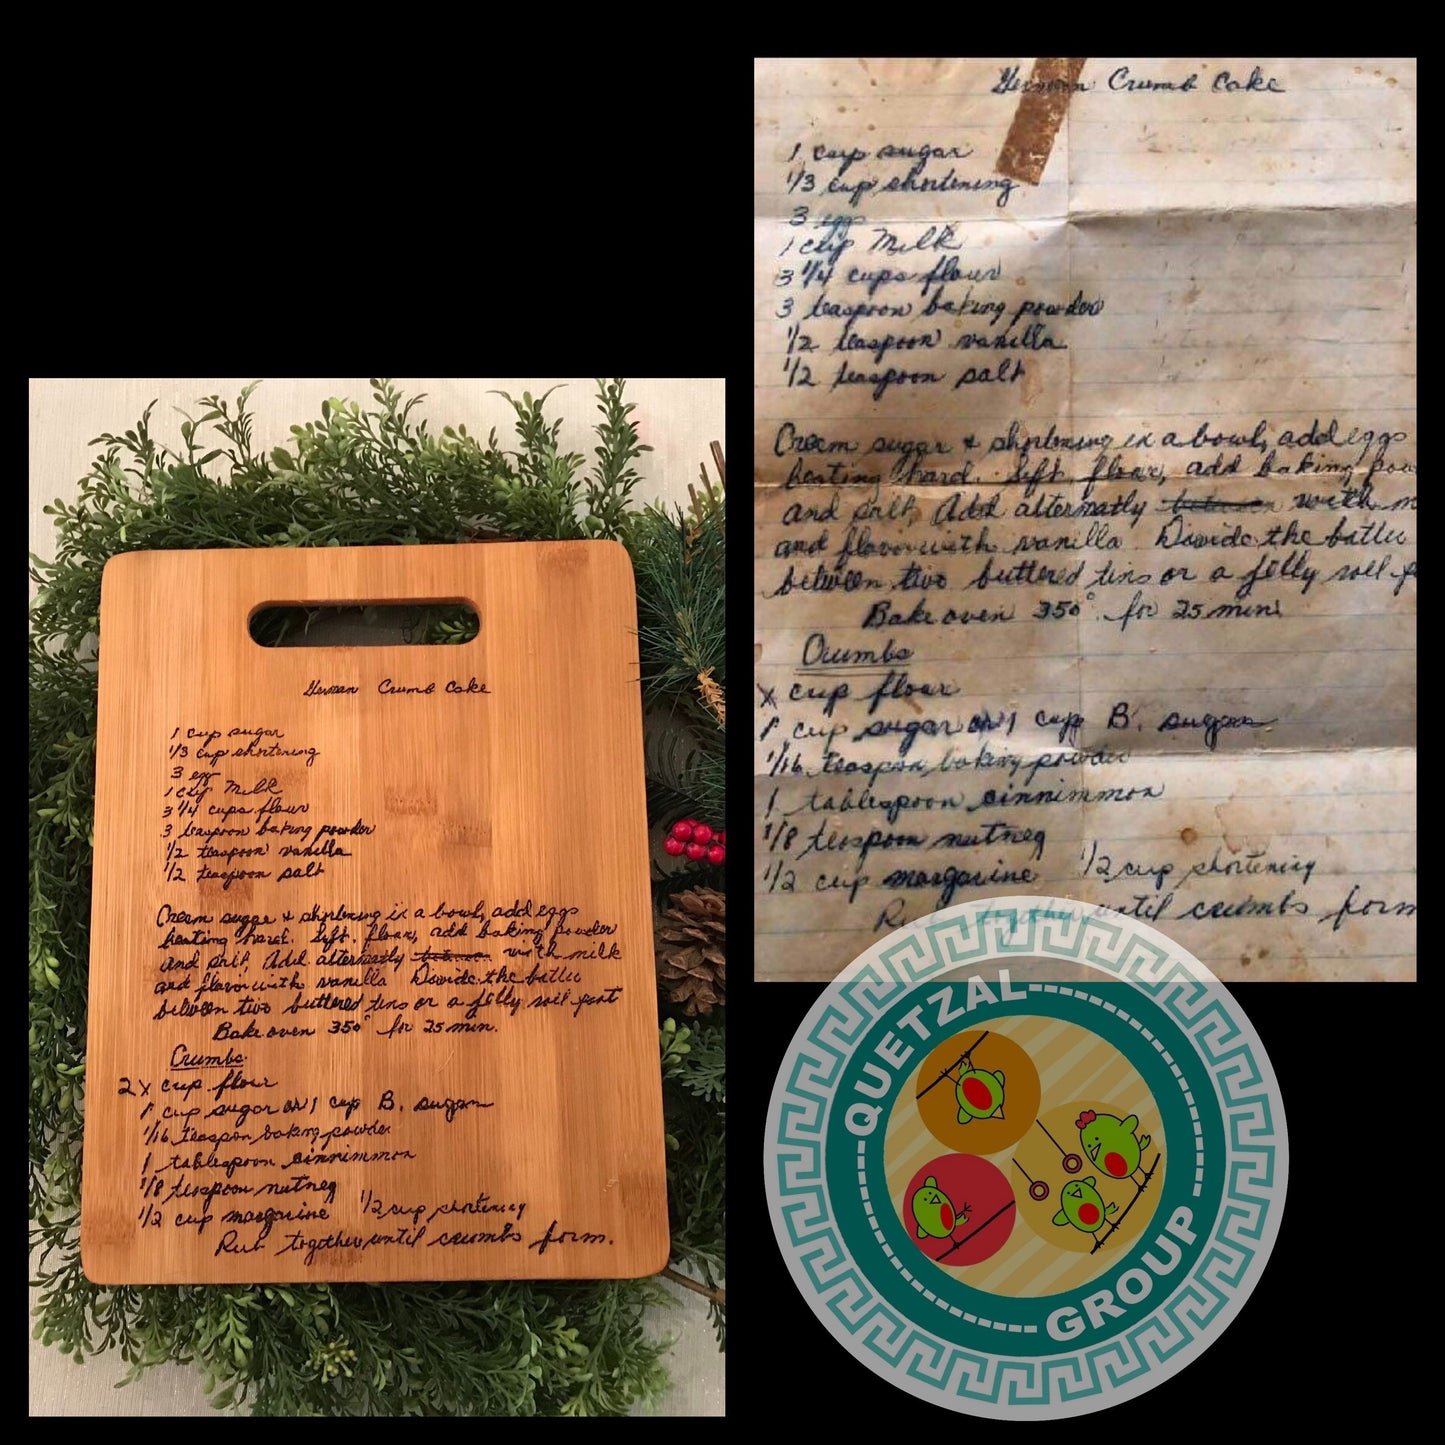 German Crumb Cake
1 cup sugar
1/3 cup shortening
3 egg
1 cup Milk
3 1/4 cups flour
3 teaspoon baking powder
1/2 teaspoon vanilla
1/2 teaspoon salt
Cream sugar & shortening in a bowl, add eggs
beating hard. Sift flour, add baking powder
and salt, Add alternatly between with milk
and flavor with vanilla Devide the batter
between two buttered tins or a jelly roll pant
Bake oven 350° for 25 min.
Crumbs
2 x cup flour
1 cup sugar or 1 cup B. sugar
1/16 teaspon baking powder
1 tablespoon cinnimmon
1/8 teaspoon nutneg
1/2 cup margarine 1/2 cup shortening
Rub together until crumbs form.
German Crumb Cake
1 cup sugar
1/3 cup shortening
3 egg
1 cup Milk
3 1/4 cups flour
3 teaspoon baking powder
1/2 teaspoon vanilla
1/2 teaspoon salt
Cream sugar & shortening in a bowl, add eggs
beating hard. Sift flour, add baking pow
and salt, Add alternatly between with m
and flavor with vanilla Devide the batter
between two buttered tins or a jelly roll p
Bake oven 350° for 25 min.
Crumbs
x cup flour
1 cup sugar or 1 cup B. sugar
1/16 teaspon baking powder
1 tablespoon cinnimmon
1/8 teaspoon nutneg
1/2 cup margarine 1/2 cup shortening
Rub together until crumbs form
QUETZAL
GROUP